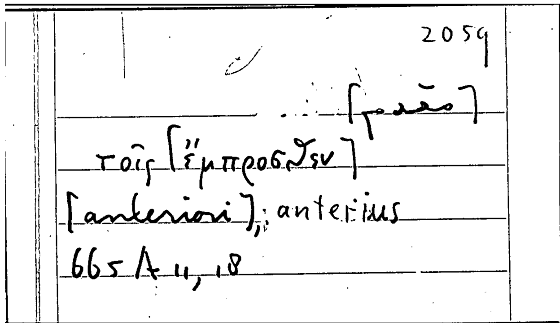 2059
τοῖς [ἔμπροσθεν]
[anteriori], anterius
665 A 11, 18